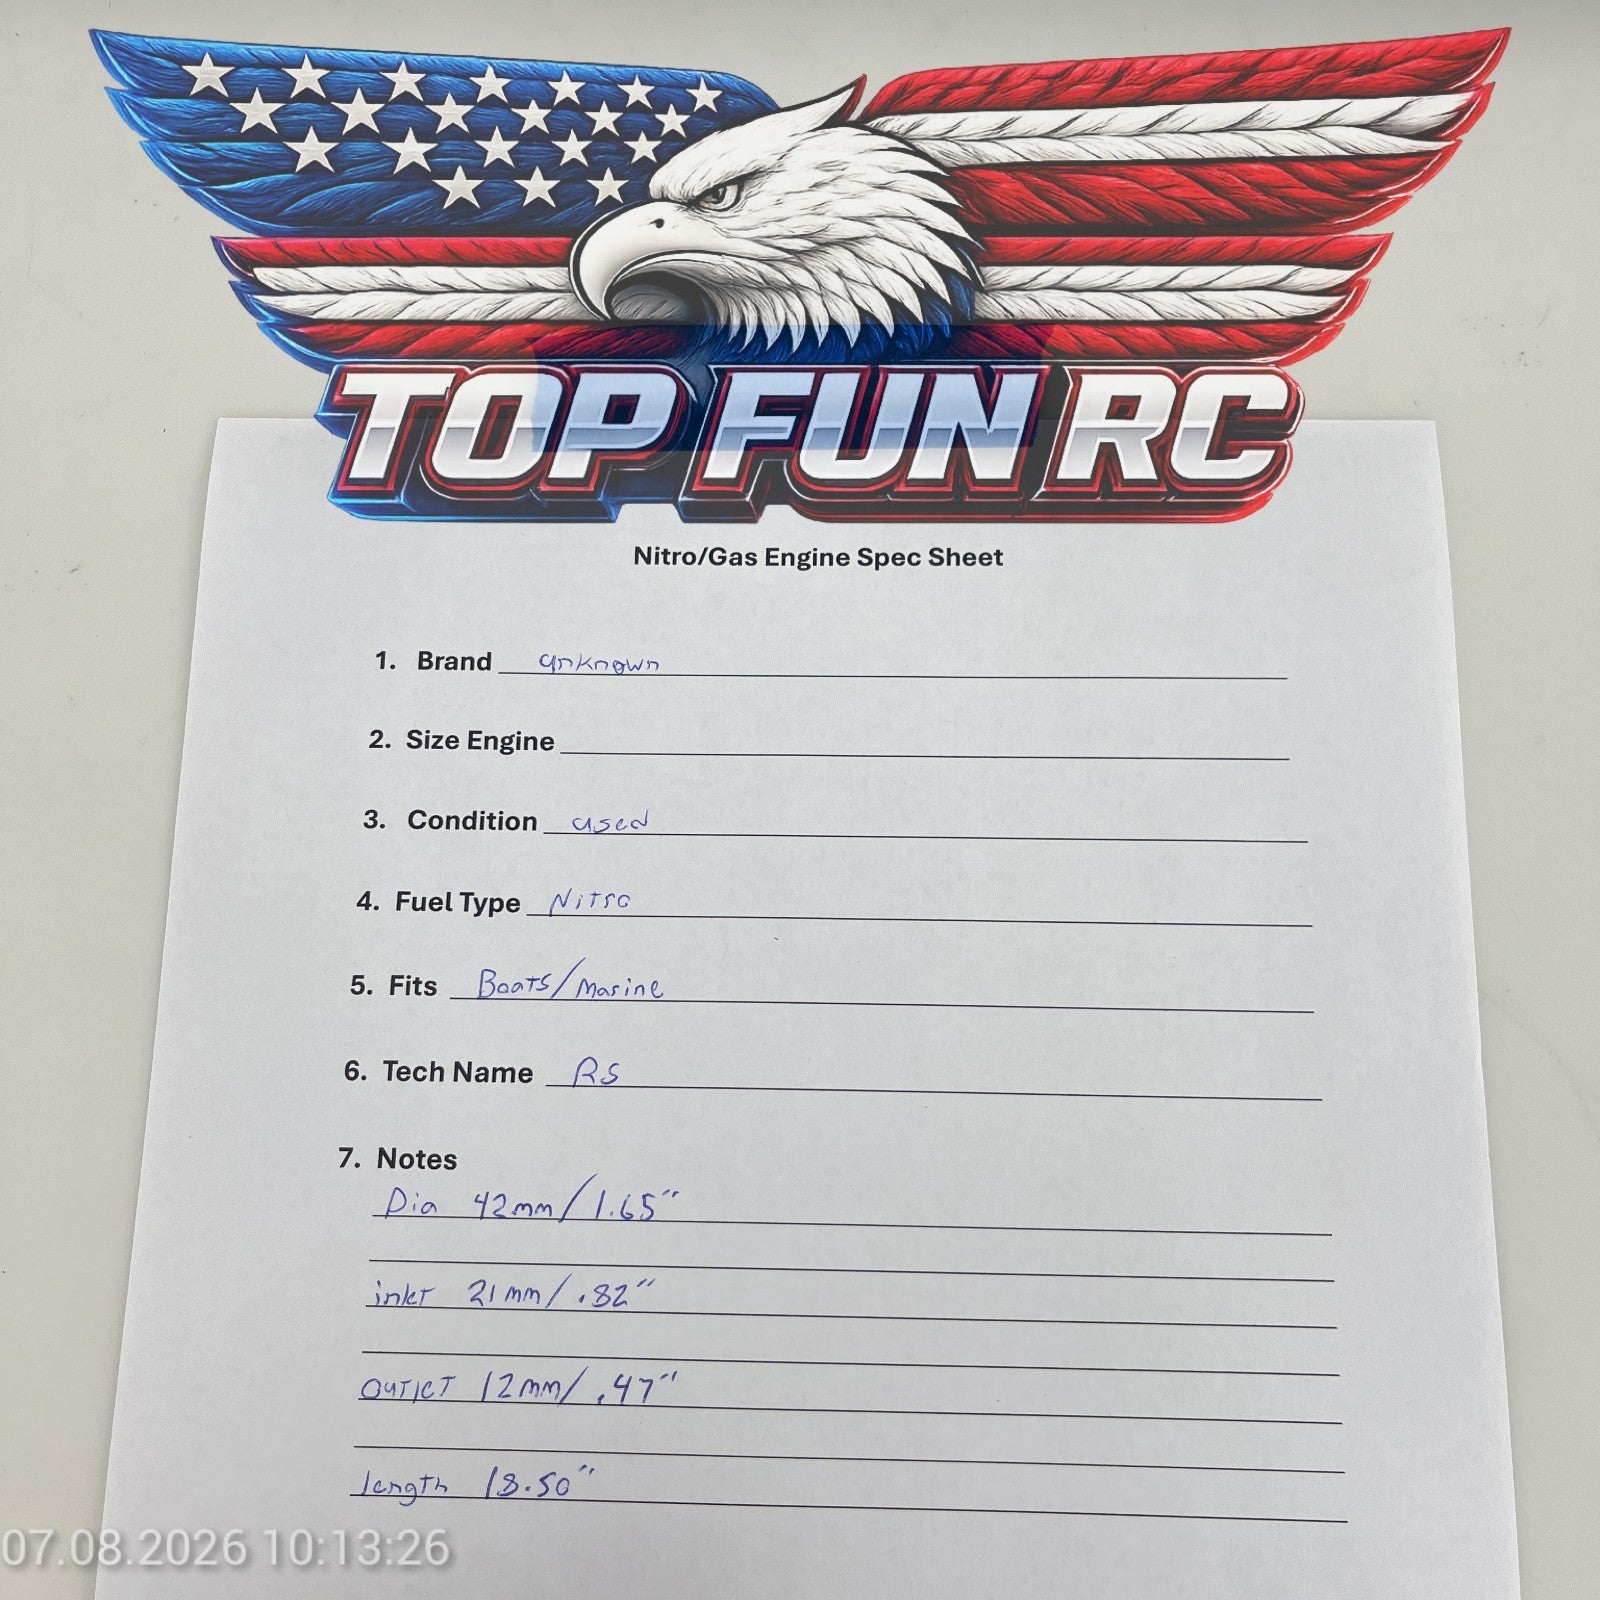 TOP FUN RC
Nitro/Gas Engine Spec Sheet
1. Brand unknown
2. Size Engine
3. Condition used
4. Fuel Type Nitro
5. Fits Boats/Marine
6. Tech Name RS
7. Notes
Dia 42mm/1.65"
inlet 21mm/.82"
outlet 12mm/.47"
length 18.50"
07.08.2026 10:13:26